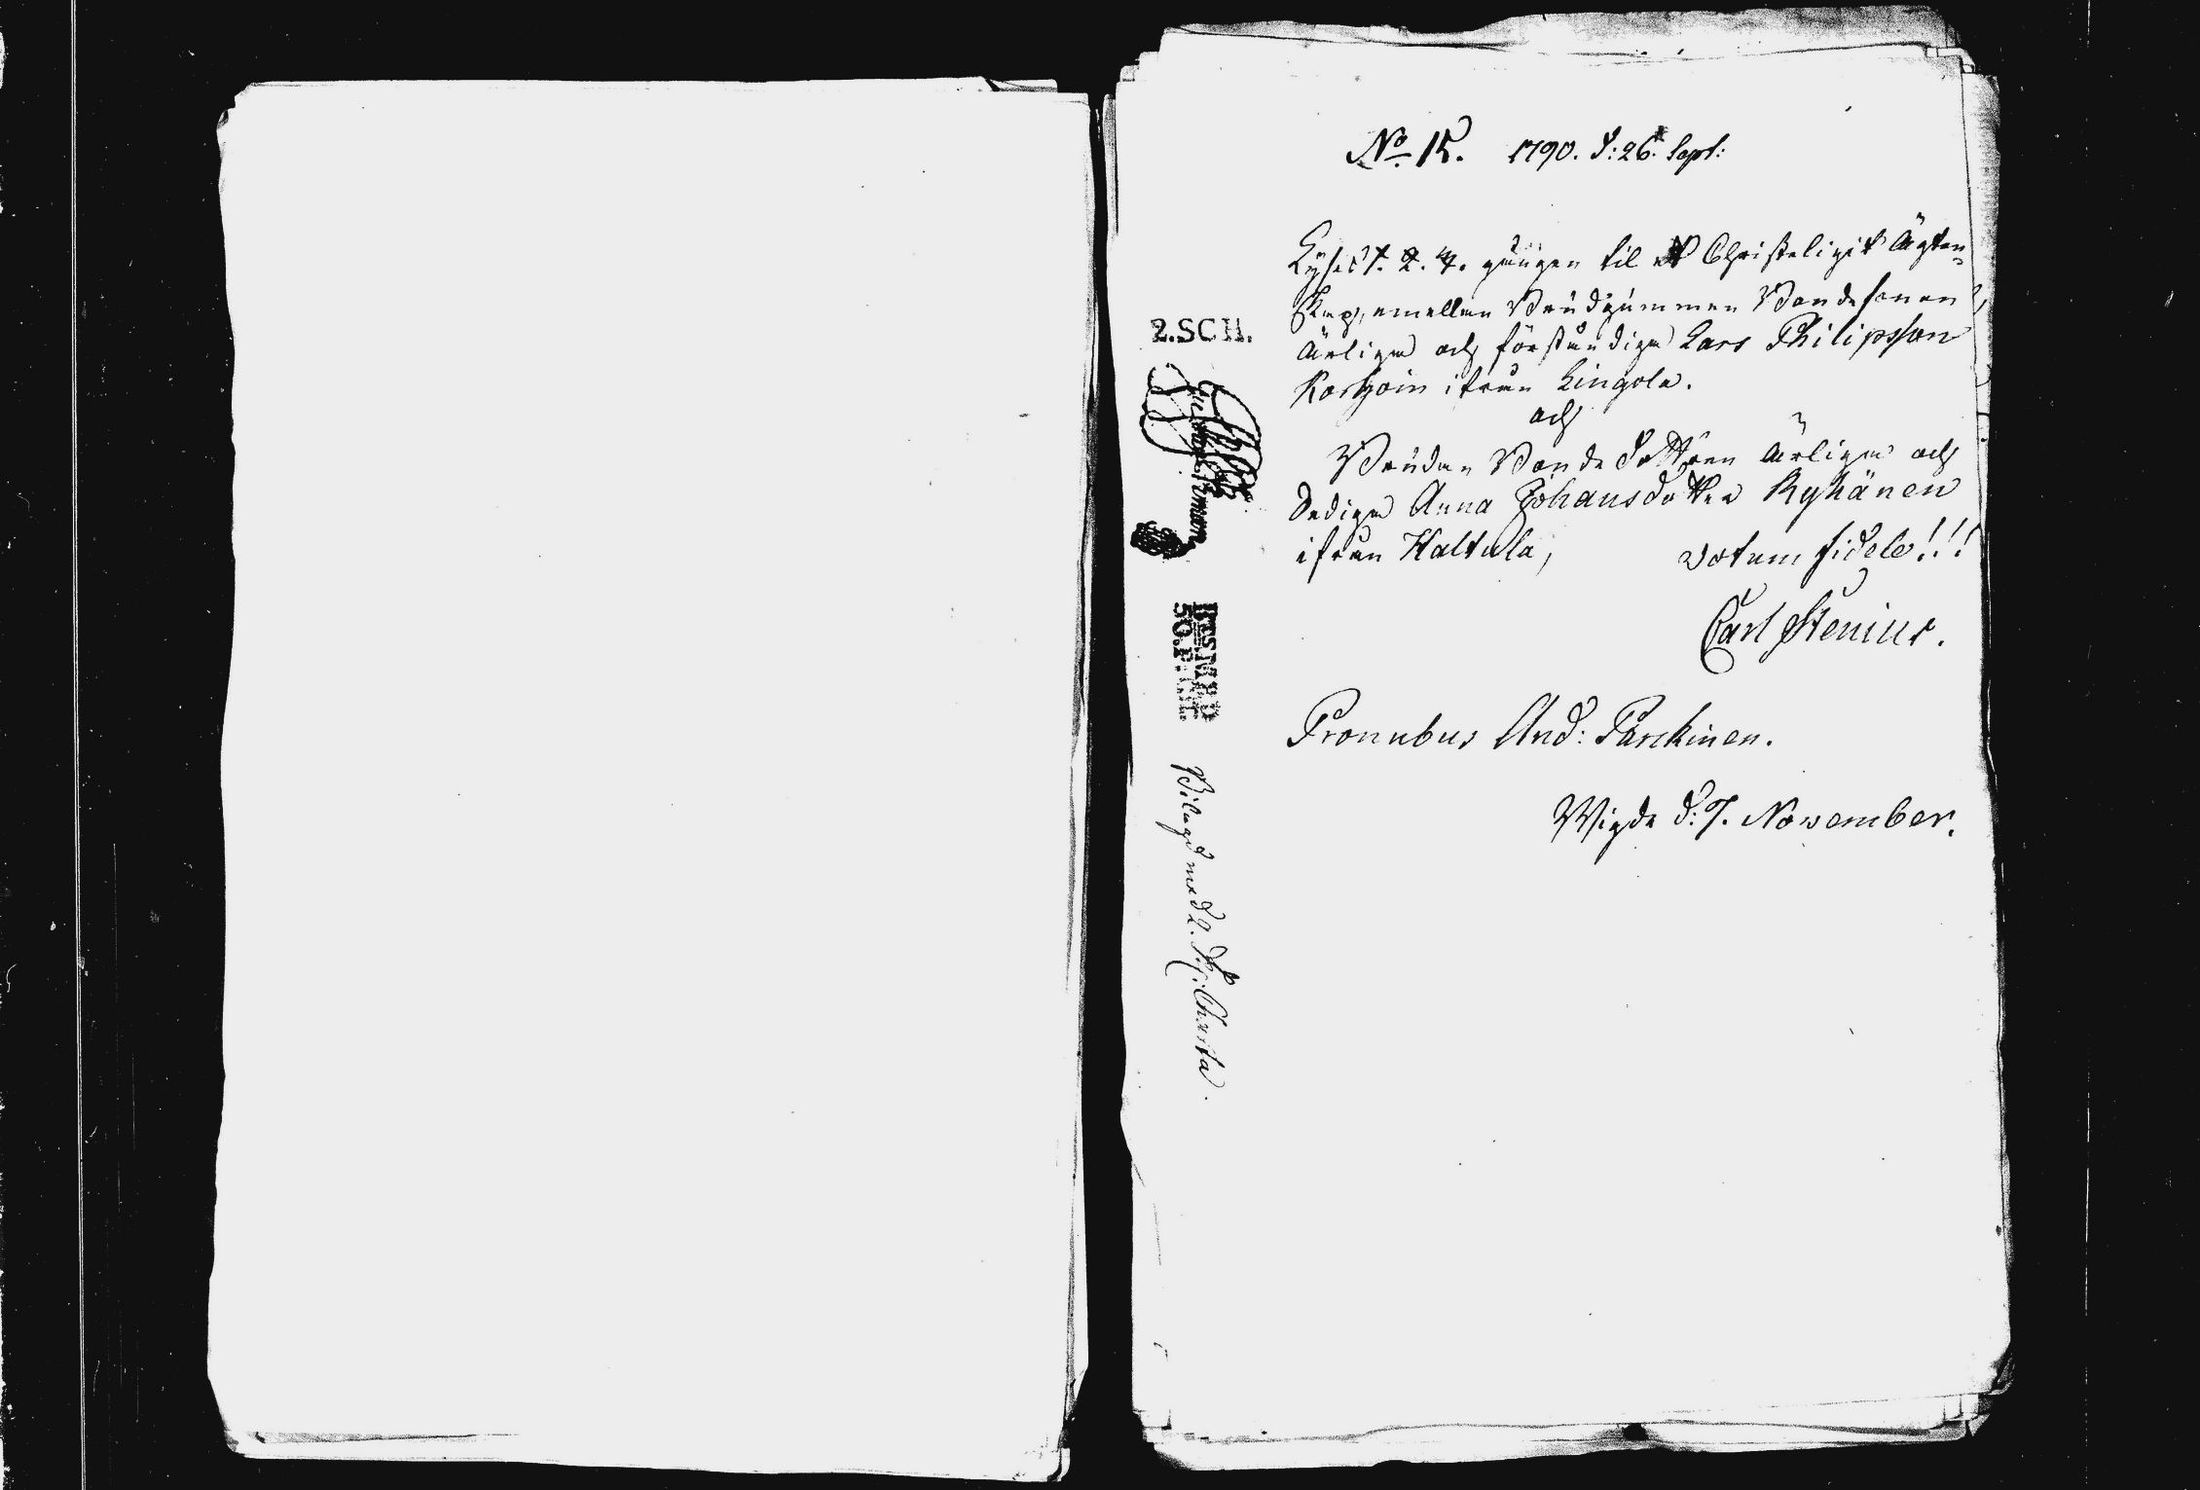 No 15. 1790. d: 26 Sept:
Lyses 1. 2. 3. gången til et Christeligit Ägten=
skap, emellan Brudgummen Bondesonen
Ärlige och förståndige Lars Philipsson
Korhoin ifrån Lingola.
och
Bruden Bonde Dottren Ärlige och
Dedige Anna Johansdotter Ryhänen
ifrån Haltula, votum fidele!!!
Carl Stenius.
Pronubus And: Parckinen.
Wigde d: 7. November.
2.SCH.
50.P:
Bilagd med 2. Charta.